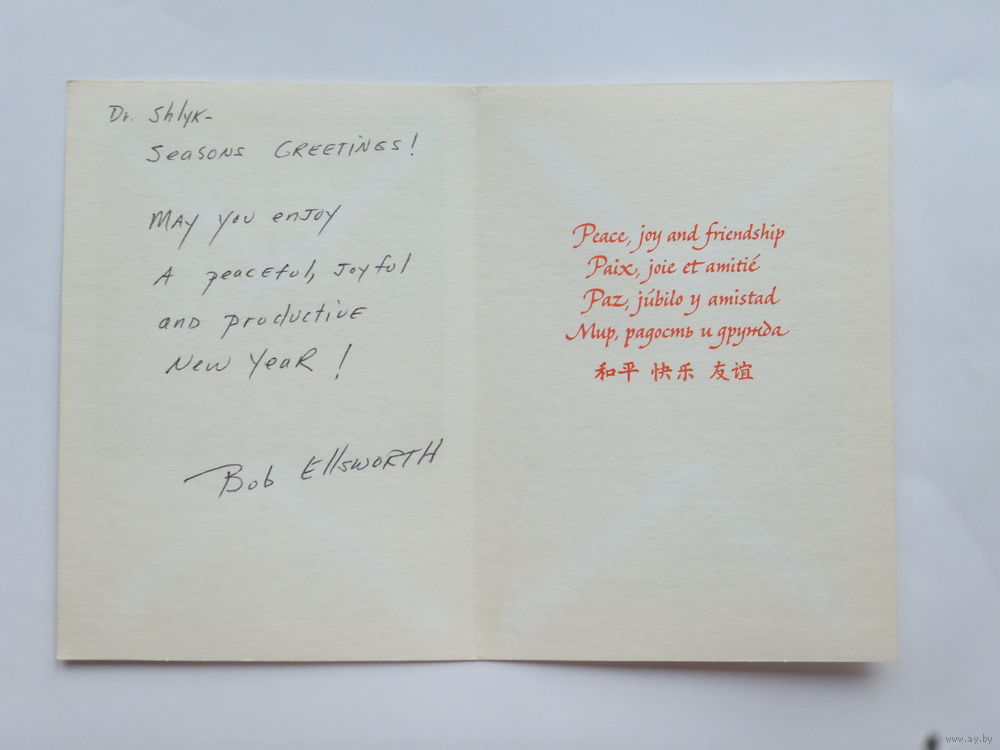 Dr. Shlyk-
Seasons Greetings!
May you enjoy
A peaceful, Joyful
and productive
New Year!
Bob Ellsworth
Peace, joy and friendship
Paix, joie et amitié
Paz, júbilo y amistad
Мир, радость и дружда
和平 快乐 友谊
www.ay.by